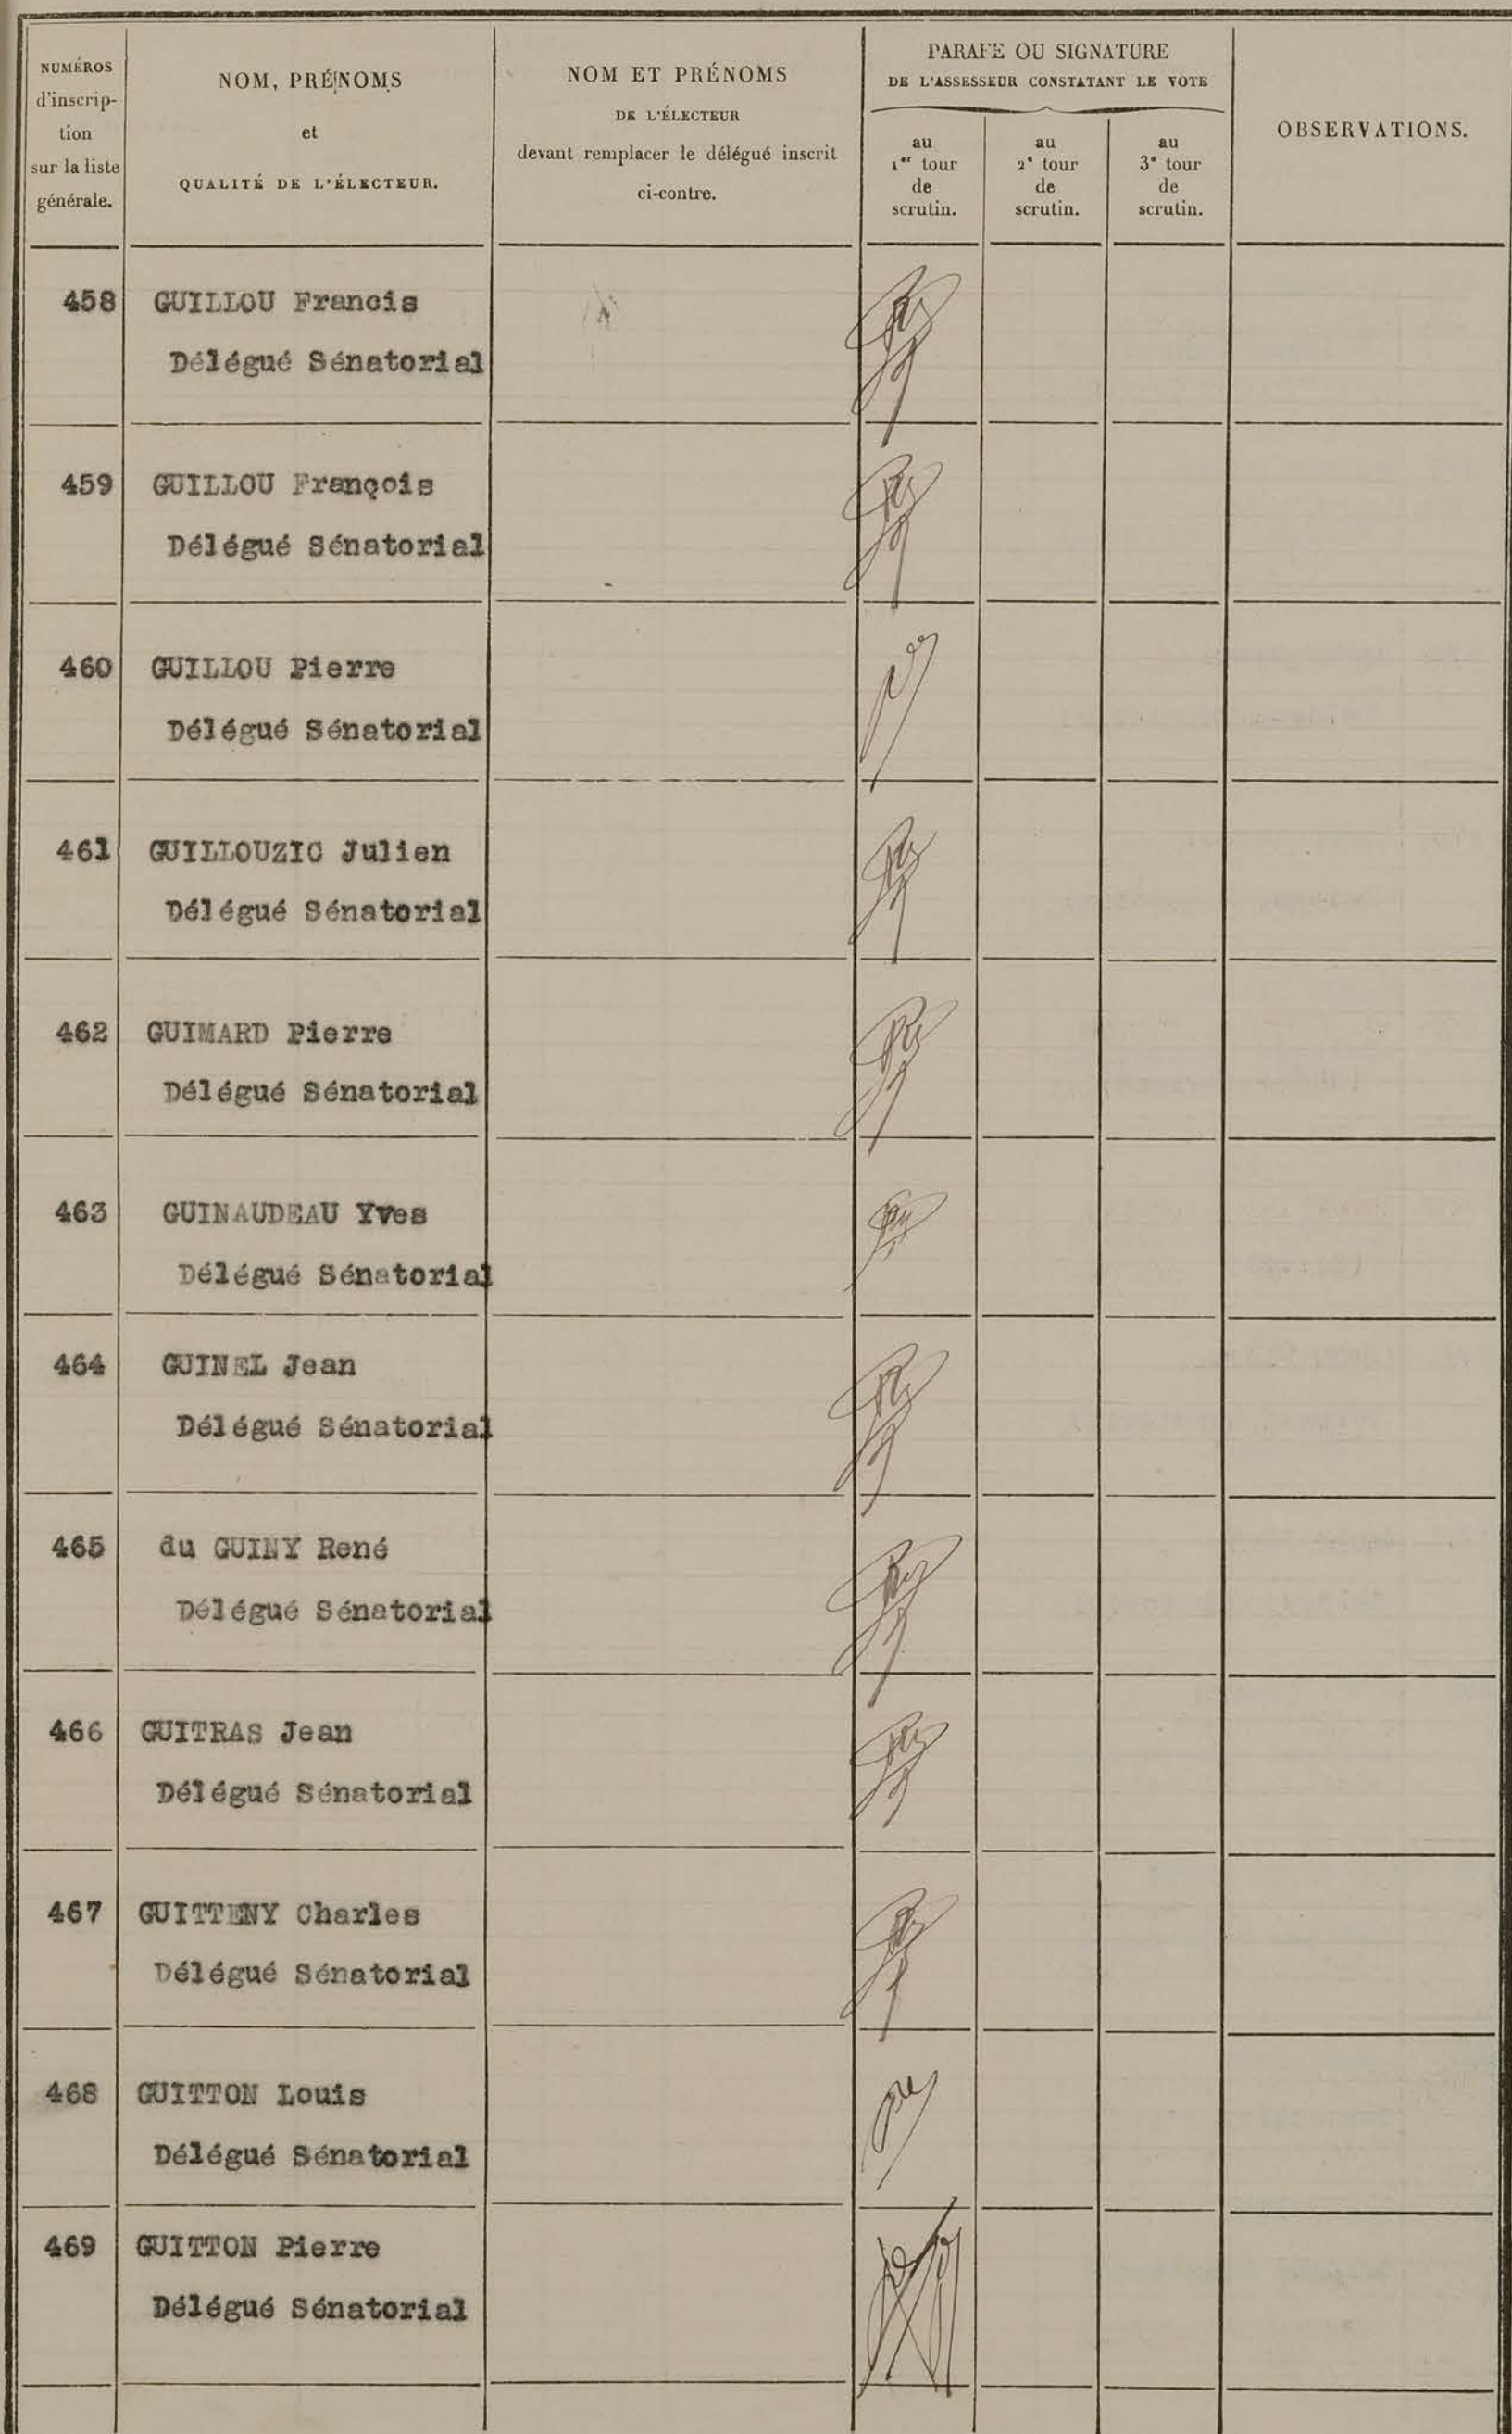 NUMÉROS
d'inscrip-
tion
sur la liste
générale.
NOM, PRÉNOMS
et
QUALITÉ DE L'ÉLECTEUR.
NOM ET PRÉNOMS
DE L'ÉLECTEUR
devant remplacer le délégué inscrit
ci-contre.
PARAFE OU SIGNATURE
DE L'ASSESSEUR CONSTATANT LE VOTE
au
1er tour
de
scrutin.
au
2e tour
de
scrutin.
au
3e tour
de
scrutin.
OBSERVATIONS.
458 GUILLOU Francis
Délégué Sénatorial
459 GUILLOU François
Délégué Sénatorial
460 GUILLOU Pierre
Délégué Sénatorial
461 GUILLOUZIC Julien
Délégué Sénatorial
462 GUIMARD Pierre
Délégué Sénatorial
463 GUINAUDEAU Yves
Délégué Sénatorial
464 GUINEL Jean
Délégué Sénatorial
465 du GUINY René
Délégué Sénatorial
466 GUITRAS Jean
Délégué Sénatorial
467 GUITTENY Charles
Délégué Sénatorial
468 GUITTON Louis
Délégué Sénatorial
469 GUITTON Pierre
Délégué Sénatorial